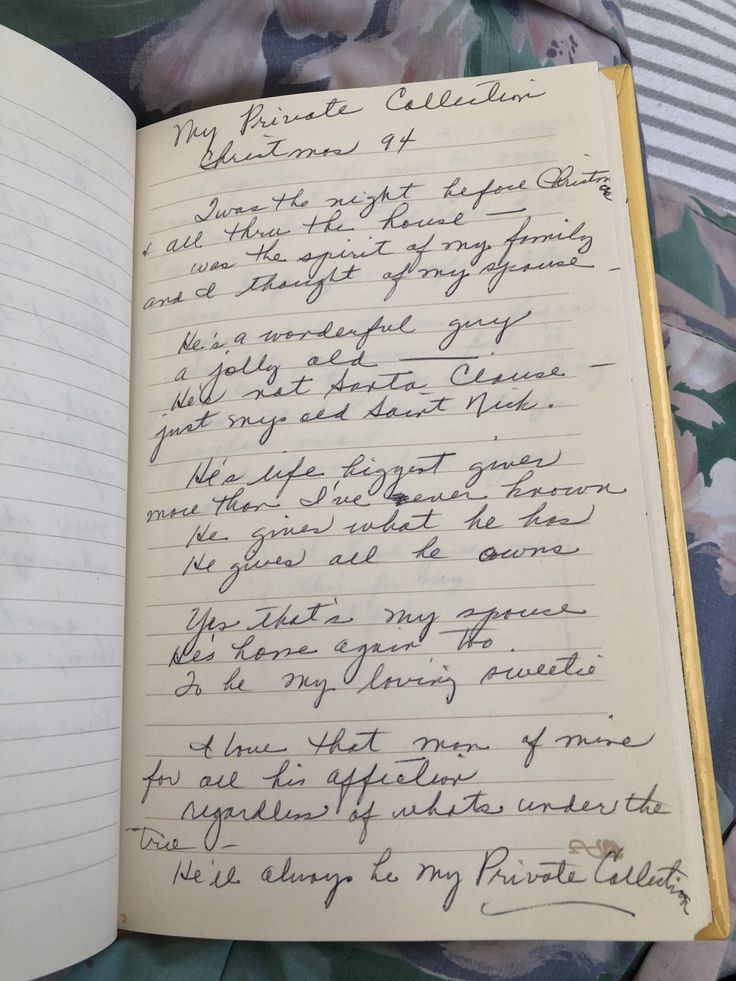 My Private Collection
Christmas 94
Twas the night before Christmas
& all thru the house —
was the spirit of my family
and I thought of my spouse —
He's a wonderful guy
a jolly old ———
He's not Santa Clause —
just my old Saint Nick.
He's life biggest giver
more than I've ever known
He gives what he has
He gives all he owns
Yes that's my spouse
He's home again too.
To be my loving sweetie
I love that man of mine
for all his affection
regardless of whats under the
tree —
He'll always be my Private Collection